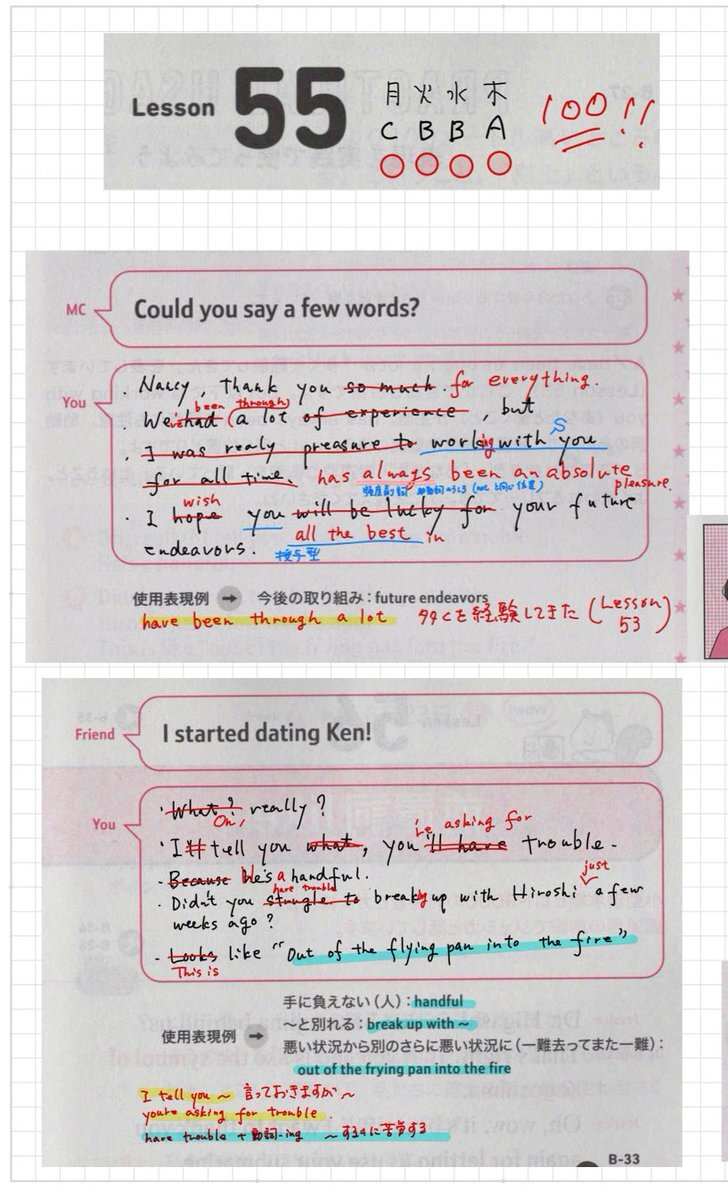 Lesson 55
月 火 水 木
C B B A
100!!
MC
Could you say a few words?
You
・Nancy, thank you so much. for everything.
been through
・We had a lot of experience, but
've
・I was realy preasure to working with you
S
for all time. has always been an absolute
pleasure.
wish
・I hope you will be lucky for your future
all the best in
endeavors.
授与型
使用表現例 → 今後の取り組み:future endeavors
have been through a lot 多くを経験してきた (Lesson 53)
Friend
I started dating Ken!
You
・What? really?
Oh,
're asking for
・I'll tell you what, you'll have trouble.
・Because He's a handful.
have trouble
just
・Didn't you strugle to breaking up with Hiroshi a few
weeks ago?
・Looks like "Out of the flying pan into the fire"
This is
使用表現例 →
手に負えない(人):handful
〜と別れる:break up with 〜
悪い状況から別のさらに悪い状況に(一難去ってまた一難):
out of the frying pan into the fire
I tell you 〜 言っておきますが〜
you're asking for trouble.
have trouble + 動詞-ing 〜するのに苦労する
B-33